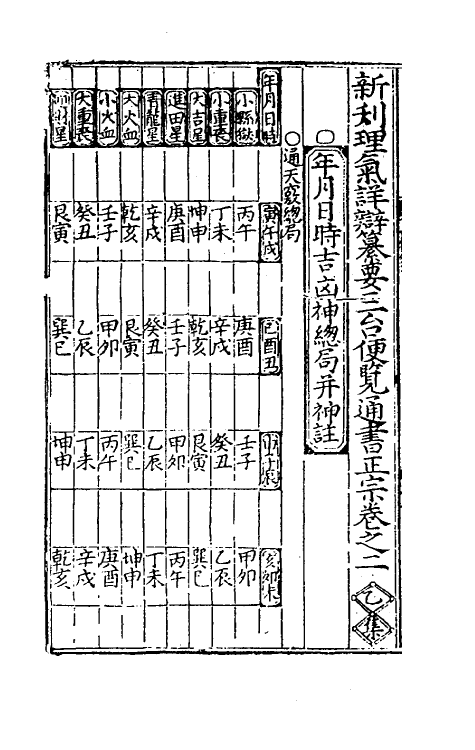 新刊理氣詳辯纂要三台便覽通書正宗卷之二 乙集
○年月日時吉凶神總局并神註
○通天竅總局
年月日時 寅午戌 巳酉丑 申子辰 亥卯未
小縣獄 丙午 庚酉 壬子 甲卯
小重喪 丁未 辛戌 癸丑 乙辰
大吉星 坤申 乾亥 艮寅 巽巳
進田星 庚酉 壬子 甲卯 丙午
青龍星 辛戌 癸丑 乙辰 丁未
大火血 乾亥 艮寅 巽巳 坤申
小火血 壬子 甲卯 丙午 庚酉
大重喪 癸丑 乙辰 丁未 辛戌
星 艮寅 巽巳 坤申 乾亥